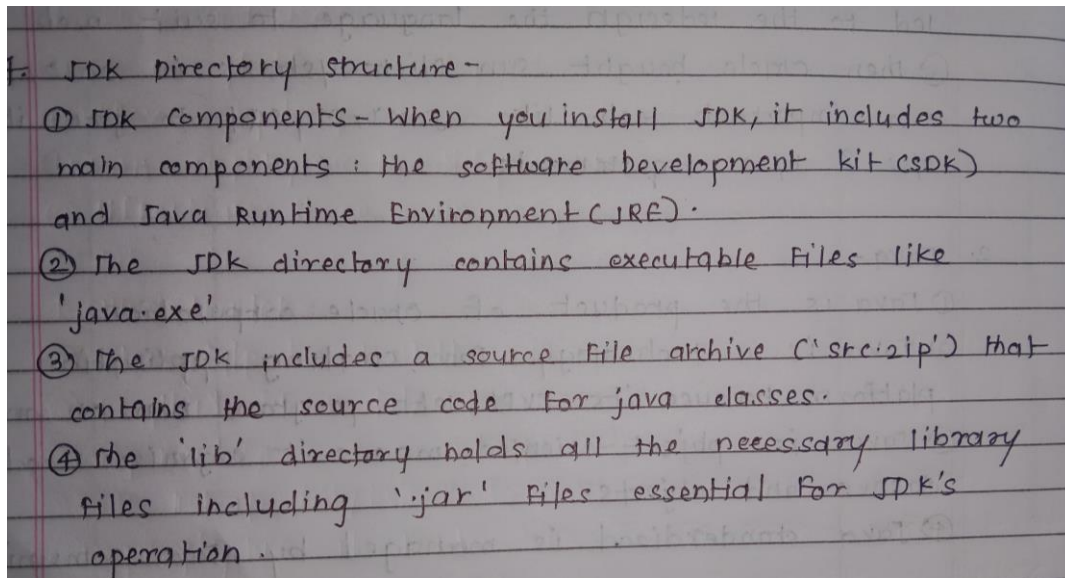 1. JDK Directory Structure -
① JDK Components - When you install JDK, it includes two
main components : the software Development kit (SDK)
and Java Runtime Environment (JRE).
② The JDK directory contains executable Files like
'java.exe'
③ The JDK includes a source File archive ('src.zip') that
contains the source code For java classes.
④ The 'lib' directory holds all the necessary library
files including '.jar' Files essential For JDK's
operation.